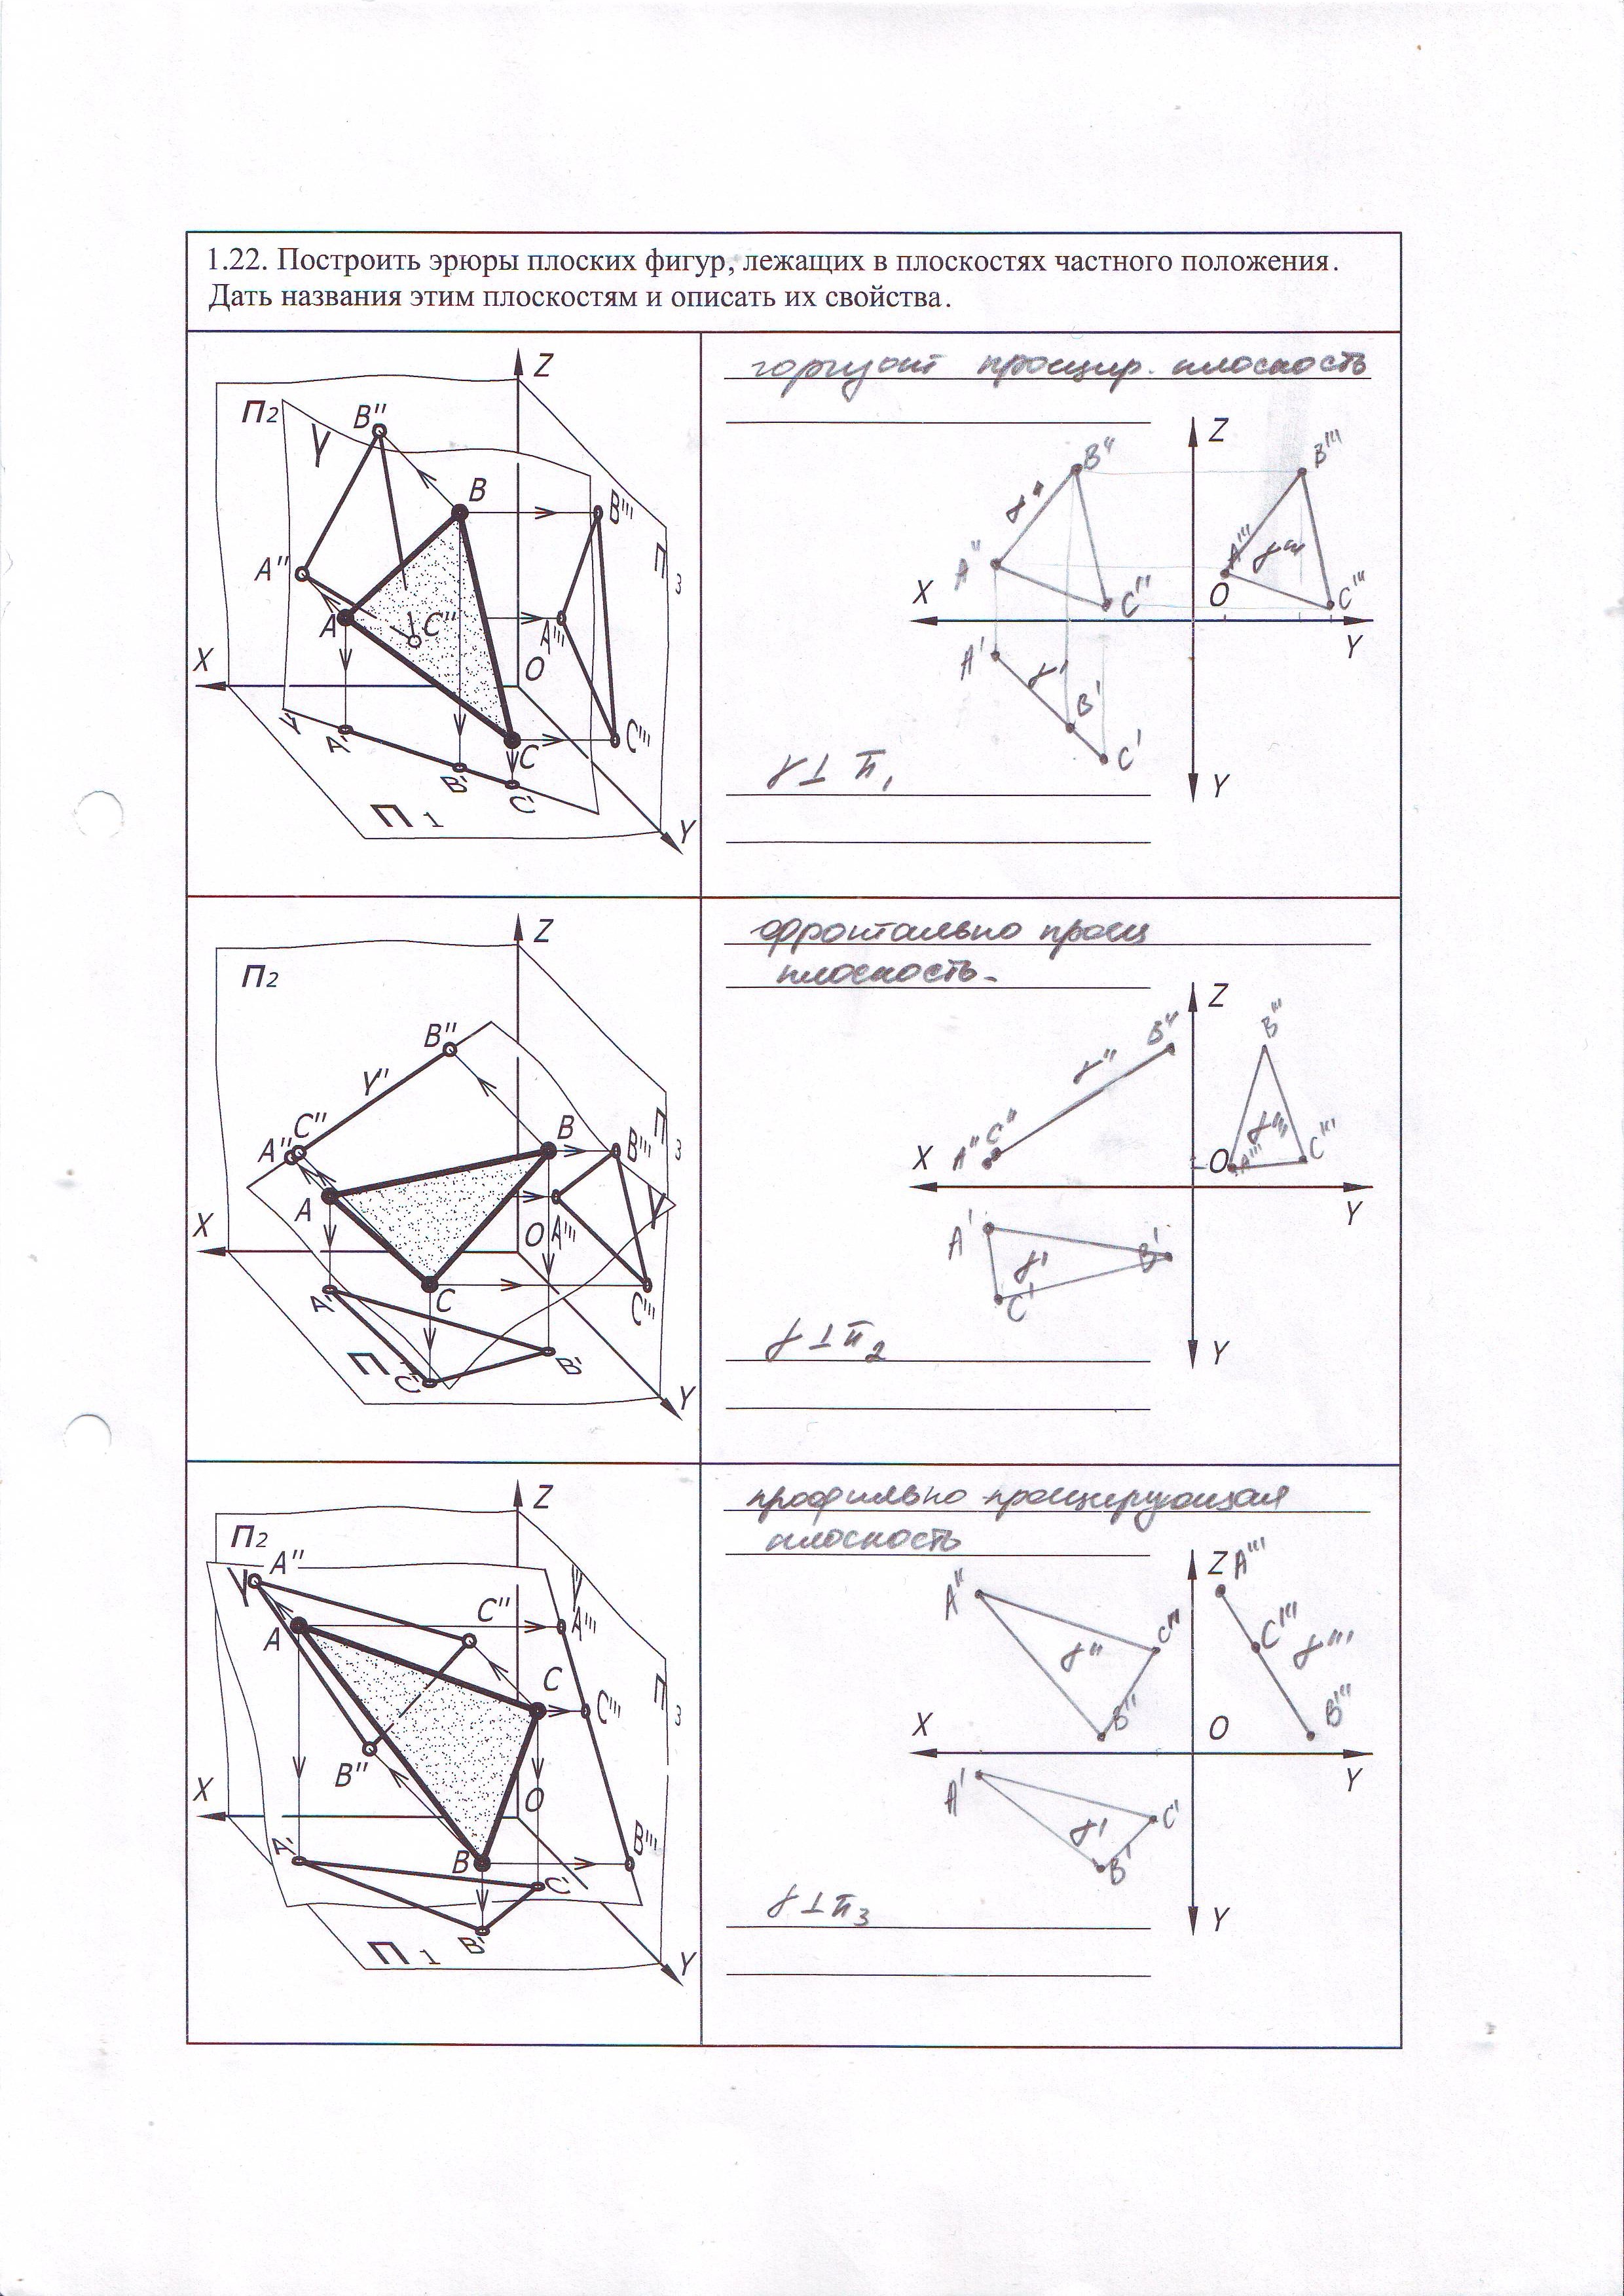 1.22. Построить эрюры плоских фигур, лежащих в плоскостях частного положения.
Дать названия этим плоскостям и описать их свойства.
Z
П2
B"
γ
B
B'''
A"
П3
A
C"
A'''
X
O
γ'
A'
C
C'''
B'
C'
П1
Y
горизонт проецир. плоскость
Z
B"
B'''
γ"
A"
A'''
γ'''
C"
X
O
C'''
Y
A'
γ'
B'
C'
γ⊥π1
Y
Z
П2
B"
γ"
C"
A"
B
B'''
П3
A
γ
X
O
A'''
A'
C
C'''
П
B'
C'
Y
фронтально проец
плоскость-
Z
B"
B'''
γ"
C"
A"
γ'''
X
O
A'''
C'''
Y
A'
γ'
B'
C'
γ⊥π2
Y
Z
П2
A"
γ
γ'''
C"
A'''
A
C
C'''
П3
B"
X
O
A'
B
B'''
C'
B'
П1
Y
профильно-проецирующая
плоскость
Z
A'''
A"
C"
C'''
γ"
γ'''
B"
B'''
X
O
Y
A'
γ'
C'
B'
γ⊥π3
Y